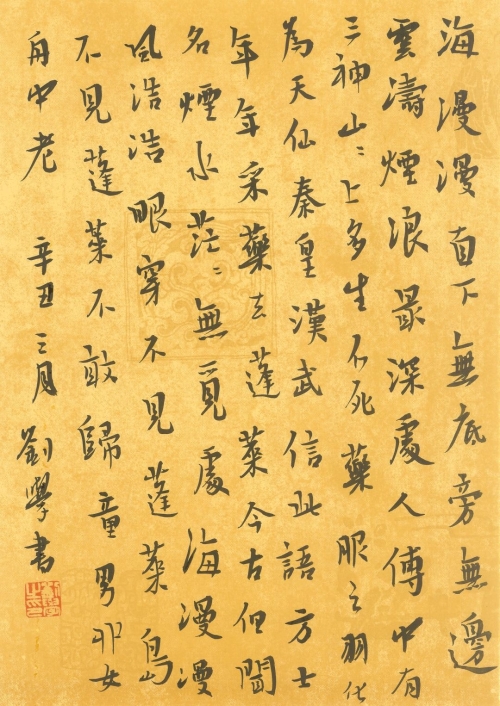 海漫漫直下無底旁無邊
雲濤煙浪最深處人傳中有
三神山〻上多生不死藥服之羽化
為天仙秦皇漢武信此語方士
年年采藥去蓬萊今古但聞
名煙水茫〻無覓處海漫漫
風浩浩眼穿不見蓬萊島
不見蓬萊不敢歸童男丱女
舟中老 辛丑三月劉學書